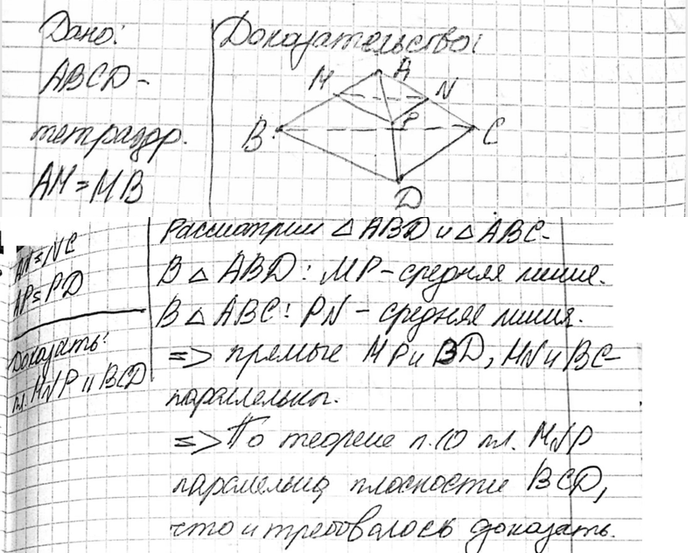 Дано:
Доказательство:
ABCD -
тетраэдр.
AM = MB
A
M
N
B
P
C
D
AN = NC
AP = PD
Доказать:
пл. MNP || BCD
Рассмотрим △ ABD и △ ABC-
В △ ABD: MP - средняя линия.
В △ ABC: PN - средняя линия.
=> прямые MP и BD, MN и BC-
параллельны.
=> По теореме п.10 пл. MNP
параллельна плоскости BCD,
что и требовалось доказать.